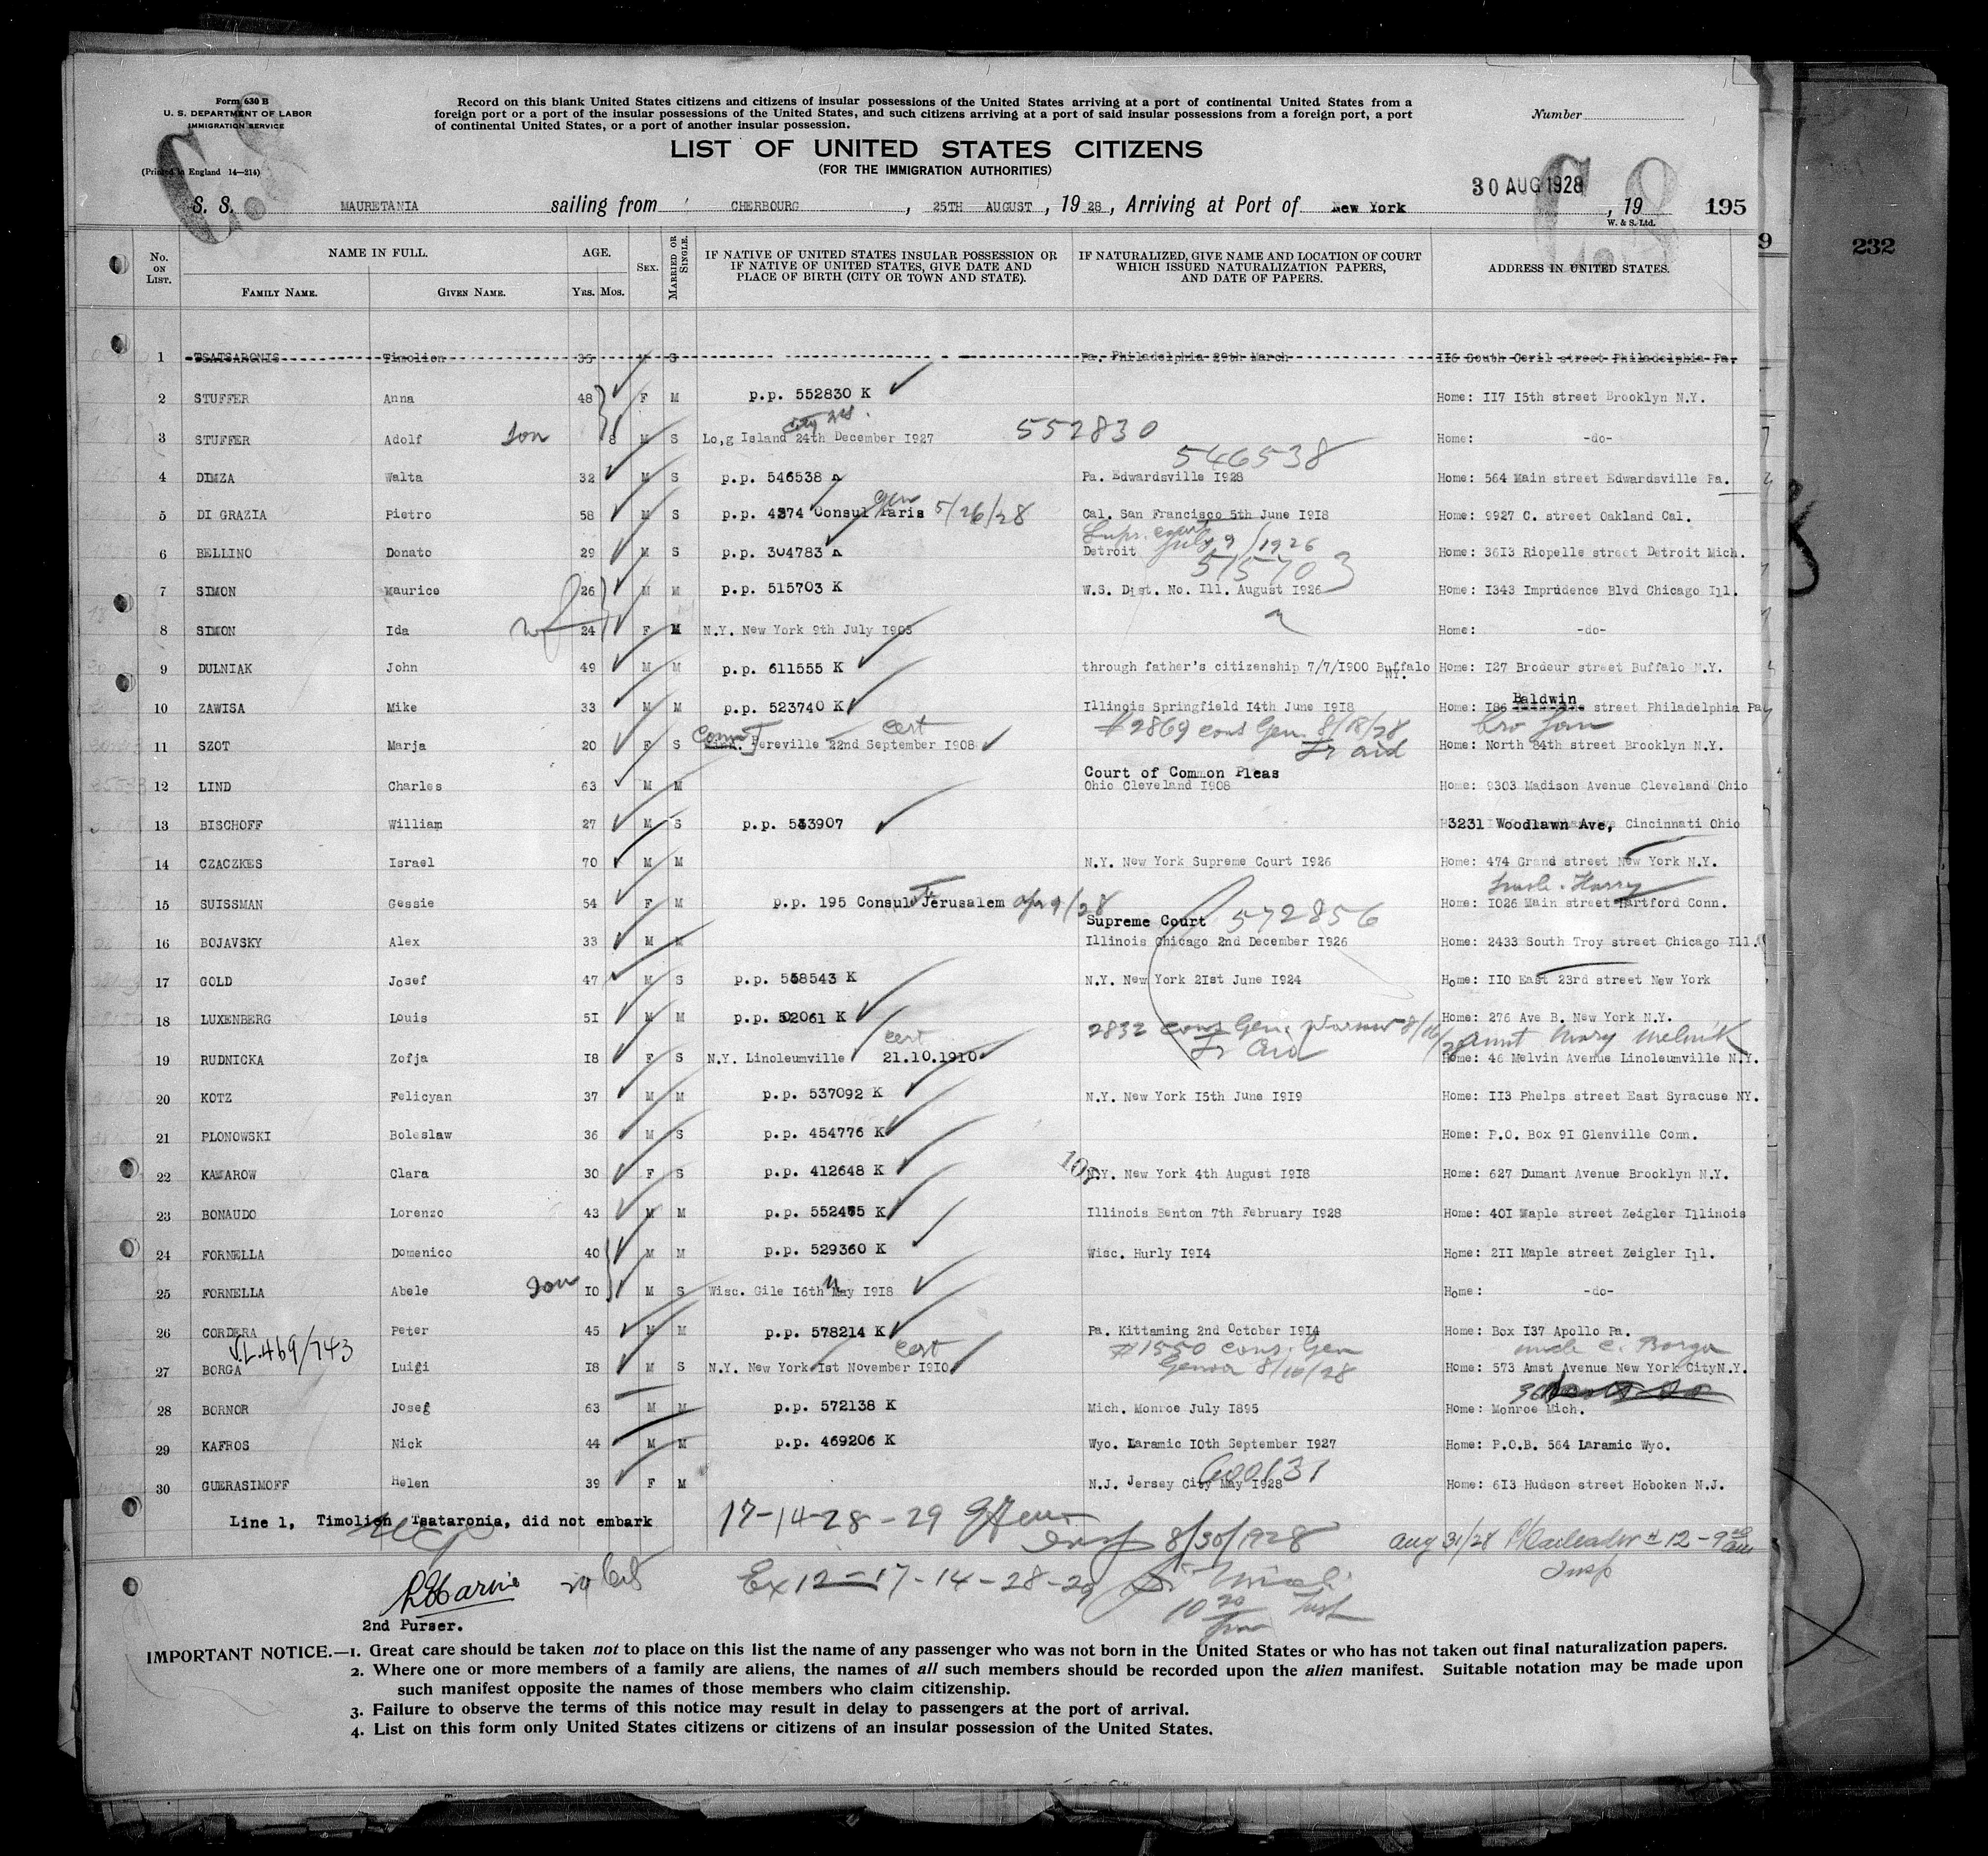 Form 630 B
U. S. DEPARTMENT OF LABOR
IMMIGRATION SERVICE
(Printed in England 14—214)
Record on this blank United States citizens and citizens of insular possessions of the United States arriving at a port of continental United States from a
foreign port or a port of the insular possessions of the United States, and such citizens arriving at a port of said insular possessions from a foreign port, a port
of continental United States, or a port of another insular possession.
Number
LIST OF UNITED STATES CITIZENS
(FOR THE IMMIGRATION AUTHORITIES)
30 AUG 1928
S. S. MAURETANIA sailing from CHERBOURG, 25TH AUGUST, 1928, Arriving at Port of New York, 19 195
W. & S. Ltd.
9 232
No. ON LIST. NAME IN FULL. FAMILY NAME. GIVEN NAME. AGE. YRS. MOS. SEX. MARRIED OR SINGLE. IF NATIVE OF UNITED STATES INSULAR POSSESSION OR IF NATIVE OF UNITED STATES, GIVE DATE AND PLACE OF BIRTH (CITY OR TOWN AND STATE). IF NATURALIZED, GIVE NAME AND LOCATION OF COURT WHICH ISSUED NATURALIZATION PAPERS, AND DATE OF PAPERS. ADDRESS IN UNITED STATES.
1 TSATSARONIS Timolien 35 M S Pa. Philadelphia 29th March 116 South Ceril street Philadelphia Pa.
2 STUFFER Anna 48 F M p.p. 552830 K Home: 117 15th street Brooklyn N.Y.
3 STUFFER Adolf son 8 M S Lo,g Island 24th December 1927 552830 Home: -do-
546538
4 DIMZA Walta 32 M S p.p. 546538 Pa. Edwardsville 1928 Home: 564 Main street Edwardsville Pa.
5 DI GRAZIA Pietro 58 M S p.p. 4374 Consul Gen Paris 5/26/28 Cal. San Francisco 5th June 1918 Home: 9927 C. street Oakland Cal.
Supr. court
6 BELLINO Donato 29 M S p.p. 304783 Detroit July 9/1926 Home: 3613 Riopelle street Detroit Mich.
515703
7 SIMON Maurice 26 M M p.p. 515703 K W.S. Dist. No. Ill. August 1926 Home: 1343 Imprudence Blvd Chicago Ill.
8 SIMON Ida wf 24 F M N.Y. New York 9th July 1903 Home: -do-
9 DULNIAK John 49 M M p.p. 611555 K through father's citizenship 7/7/1900 Buffalo NY. Home: 127 Brodeur street Buffalo N.Y.
10 ZAWISA Mike 33 M M p.p. 523740 K Illinois Springfield 14th June 1918 Home: 186 Baldwin street Philadelphia Pa
Conn cert #2869 cons Gen. 8/18/28
11 SZOT Marja 20 F S Pereville 22nd September 1908 Home: North 84th street Brooklyn N.Y.
Court of Common Pleas
12 LIND Charles 63 M M Ohio Cleveland 1908 Home: 9303 Madison Avenue Cleveland Ohio
13 BISCHOFF William 27 M S p.p. 533907 3231 Woodlawn Ave, Cincinnati Ohio
14 CZACZKES Israel 70 M M N.Y. New York Supreme Court 1926 Home: 474 Grand street New York N.Y.
15 SUISSMAN Gessie 54 F M p.p. 195 Consul Jerusalem Apr 9/28 Home: 1026 Main street Hartford Conn.
Supreme Court 572856
16 BOJAVSKY Alex 33 M M Illinois Chicago 2nd December 1926 Home: 2433 South Troy street Chicago Ill.
17 GOLD Josef 47 M S p.p. 558543 K N.Y. New York 21st June 1924 Home: 110 East 23rd street New York
18 LUXENBERG Louis 51 M M p.p. 52061 K Home: 276 Ave B. New York N.Y.
cert 2832 cons Gen. Warsaw 8/16/28 Aunt Mary Melnik
19 RUDNICKA Zofja 18 F S N.Y. Linoleumville 21.10.1910 Home: 46 Melvin Avenue Linoleumville N.Y.
20 KOTZ Felicyan 37 M M p.p. 537092 K N.Y. New York 15th June 1919 Home: 113 Phelps street East Syracuse NY.
21 PLONOWSKI Boleslaw 36 M S p.p. 454776 K Home: P.O. Box 91 Glenville Conn.
22 KAMAROW Clara 30 F S p.p. 412648 K N.Y. New York 4th August 1918 Home: 627 Dumant Avenue Brooklyn N.Y.
23 BONAUDO Lorenzo 43 M M p.p. 552475 K Illinois Benton 7th February 1928 Home: 401 Maple street Zeigler Illinois
24 FORNELLA Domenico 40 M M p.p. 529360 K Wisc. Hurly 1914 Home: 211 Maple street Zeigler Ill.
25 FORNELLA Abele son 10 M S Wisc. Gile 16th May 1918 Home: -do-
26 CORDERA Peter 45 M M p.p. 578214 K Pa. Kittaming 2nd October 1914 Home: Box 137 Apollo Pa.
469/743 cert #1550 Cons. Gen Genoa 8/10/28 uncle C. Borga
27 BORGA Luigi 18 M S N.Y. New York 1st November 1910 Home: 573 Amst Avenue New York CityN.Y.
28 BORNOR Josef 63 M M p.p. 572138 K Mich. Monroe July 1895 Home: Monroe Mich.
29 KAFROS Nick 44 M M p.p. 469206 K Wyo. Laramic 10th September 1927 Home: P.O.B. 564 Laramic Wyo.
600131
30 GUERASIMOFF Helen 39 F M N.J. Jersey City May 1928 Home: 613 Hudson street Hoboken N.J.
Line 1, Timolien Tsataronia, did not embark
17-14-28-29
8/30/1928
Aug 31/28
Insp
Ex 12-17-14-28-29
2nd Purser.
IMPORTANT NOTICE.—1. Great care should be taken not to place on this list the name of any passenger who was not born in the United States or who has not taken out final naturalization papers.
2. Where one or more members of a family are aliens, the names of all such members should be recorded upon the alien manifest. Suitable notation may be made upon
such manifest opposite the names of those members who claim citizenship.
3. Failure to observe the terms of this notice may result in delay to passengers at the port of arrival.
4. List on this form only United States citizens or citizens of an insular possession of the United States.